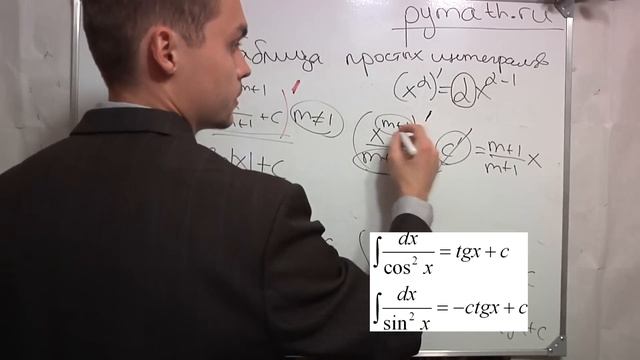 pymath.ru
таблица простых интегралов
(x^α)' = αx^{α-1}
m+1
+ c)' m≠1
(x^{m+1} c' = \frac{m+1}{m+1} x
|x| + c
∫ \frac{dx}{cos² x} = tgx + c
∫ \frac{dx}{sin² x} = −ctgx + c